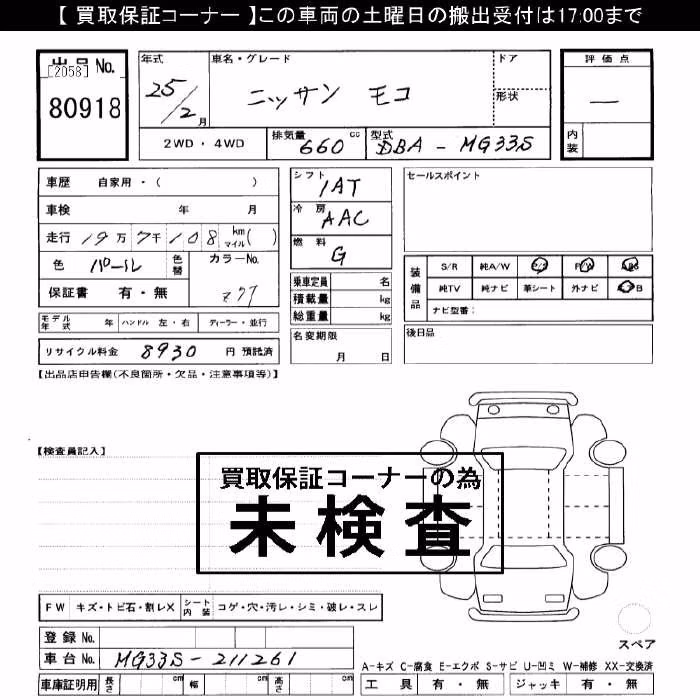 【 買取保証コーナー 】この車両の土曜日の搬出受付は17:00まで
出品 No.
[2058]
80918
年式
25/2月
車名・グレード
ニッサン モコ
ドア
形状
評価点
—
内装
2WD ・ 4WD
排気量 660 cc
型式 DBA - MG33S
車歴 自家用・( )
車検 年 月
走行 19万 7千 108 km マイル ( )
色 パール 色替
カラーNo.
Z7T
保証書 有・無
シフト 1AT
冷房 AAC
燃料 G
乗車定員 名
積載量 kg
総重量 kg
セールスポイント
装備品
S/R 純A/W P/S P/W ABS
純TV 純ナビ 革シート 外ナビ B
ナビ型番:
モデル年式 年 ハンドル 左・右 ディーラー・並行
リサイクル料金 8930 円 預託済
名変期限
月 日
後日品
【出品店申告欄(不良箇所・欠品・注意事項等)】
【検査員記入】
買取保証コーナーの為
未検査
FW キズ・トビ石・割レX シート内装 コゲ・穴・汚レ・シミ・破レ・スレ
スペア
登録 No.
車台 No. MG33S-211261
A-キズ C-腐食 E-エクボ S-サビ U-凹ミ W-補修 XX-交換済
車庫証明用 長さ cm 幅 cm 高さ cm
工具 有・無 ジャッキ 有・無